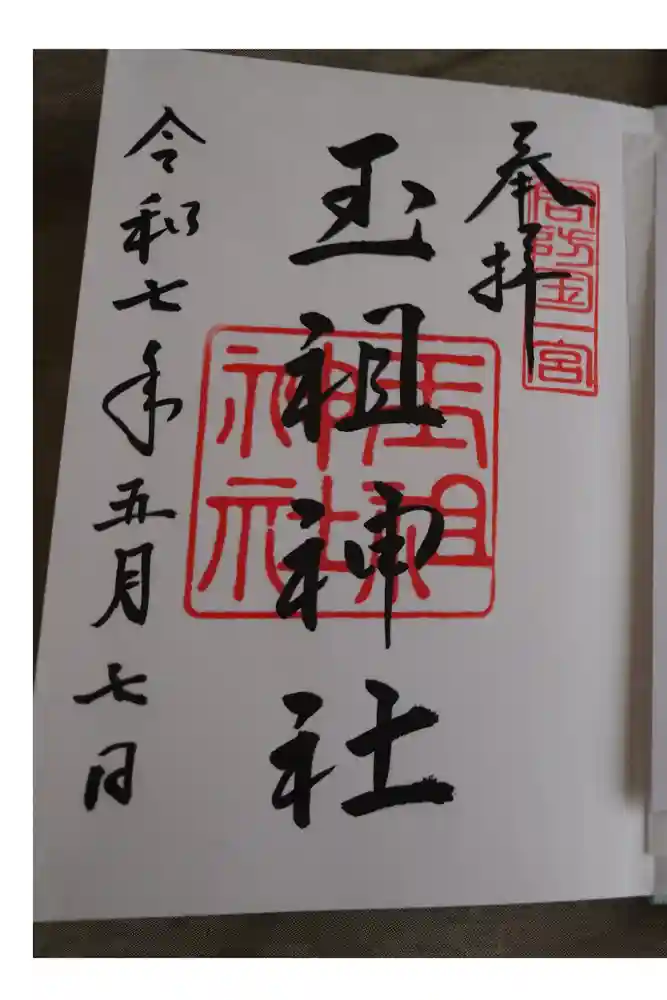 奉拝
周防国一宮
玉祖神社
玉祖
神社
令和七年五月七日